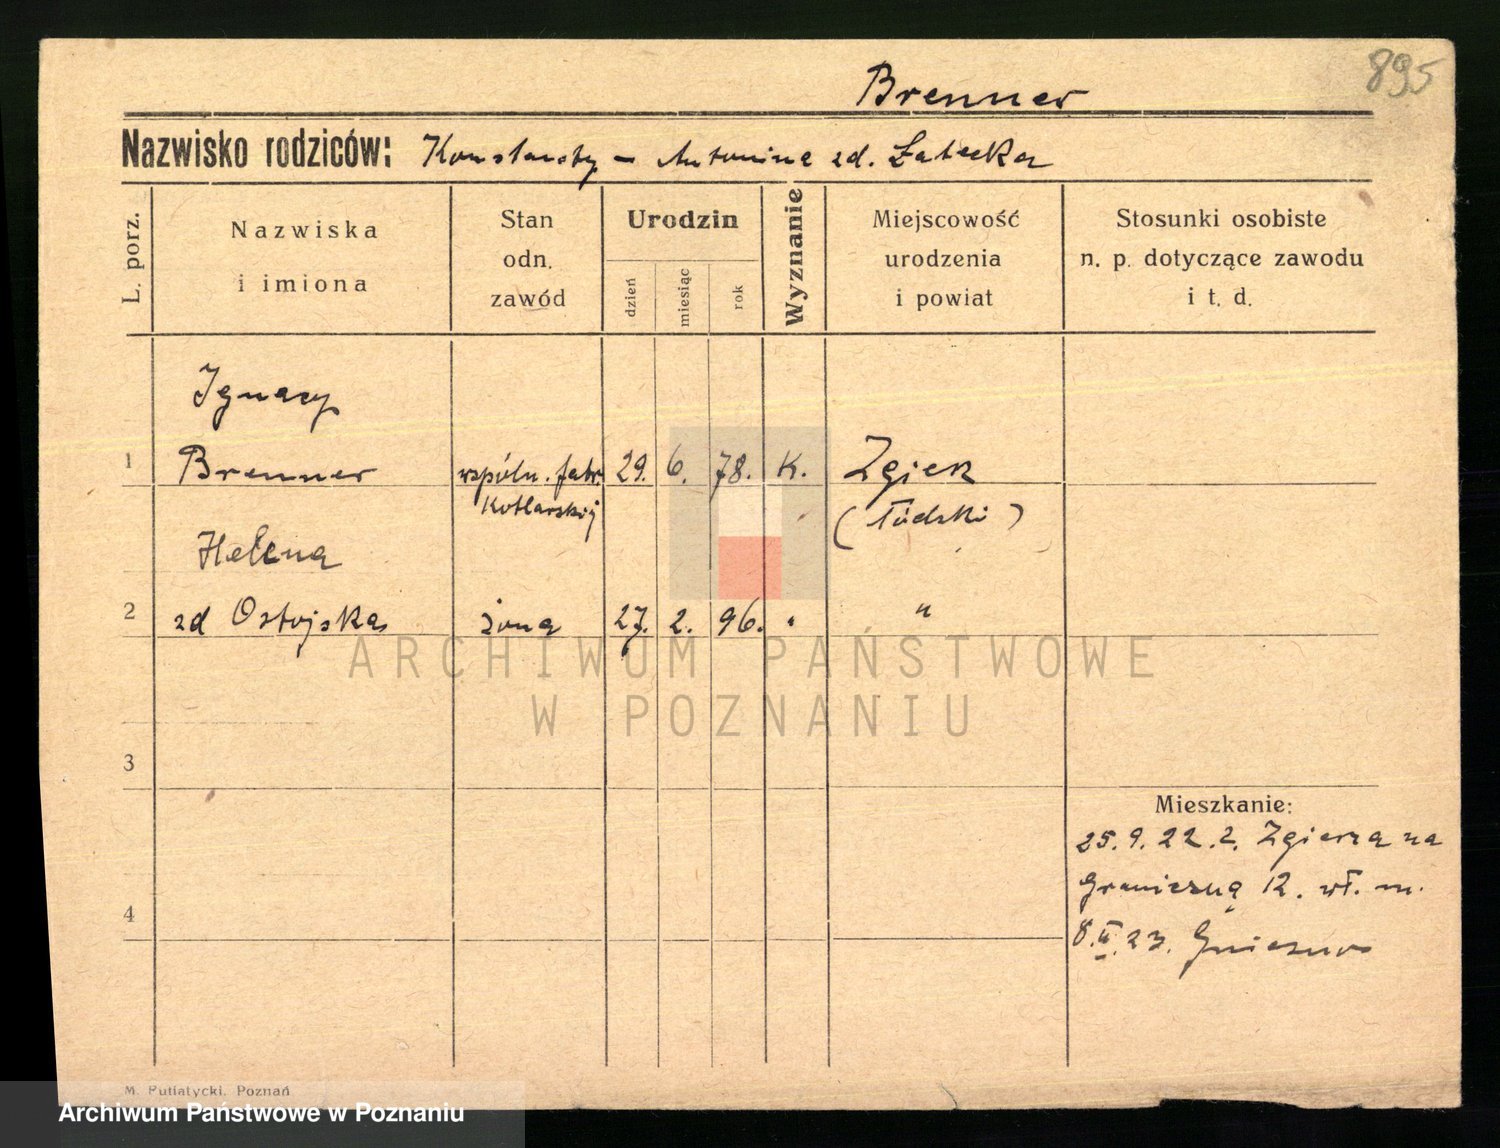 895
Brenner
Nazwisko rodziców: Konstanty – Antonina zd. Łatecka
L. porz.
Nazwiska i imiona
Stan odn. zawód
Urodzin
dzień
miesiąc
rok
Wyznanie
Miejscowość urodzenia i powiat
Stosunki osobiste n. p. dotyczące zawodu i t. d.
Ignacy
1 Brenner wspóln. fabr. 29. 6. 78. K. Zgierz
Kotlarskiej (łódzki)
Helena
2 zd Ostojska żona 27. 2. 96. " "
ARCHIWUM PAŃSTWOWE
W POZNANIU
3
Mieszkanie:
25.9.22. z. Zgierza na
Graniczną 12. wł. m.
4
8.II.23. Gniezno
M. Putiatycki, Poznań
Archiwum Państwowe w Poznaniu